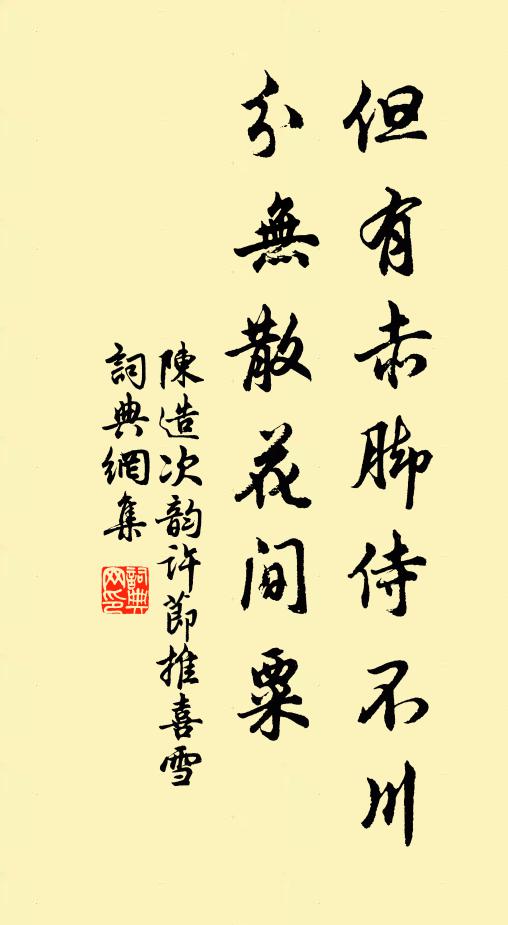 但有赤脚侍不川
分無散花間粟
陳造次韵許節推喜雪
詞典網集
詞典
网印